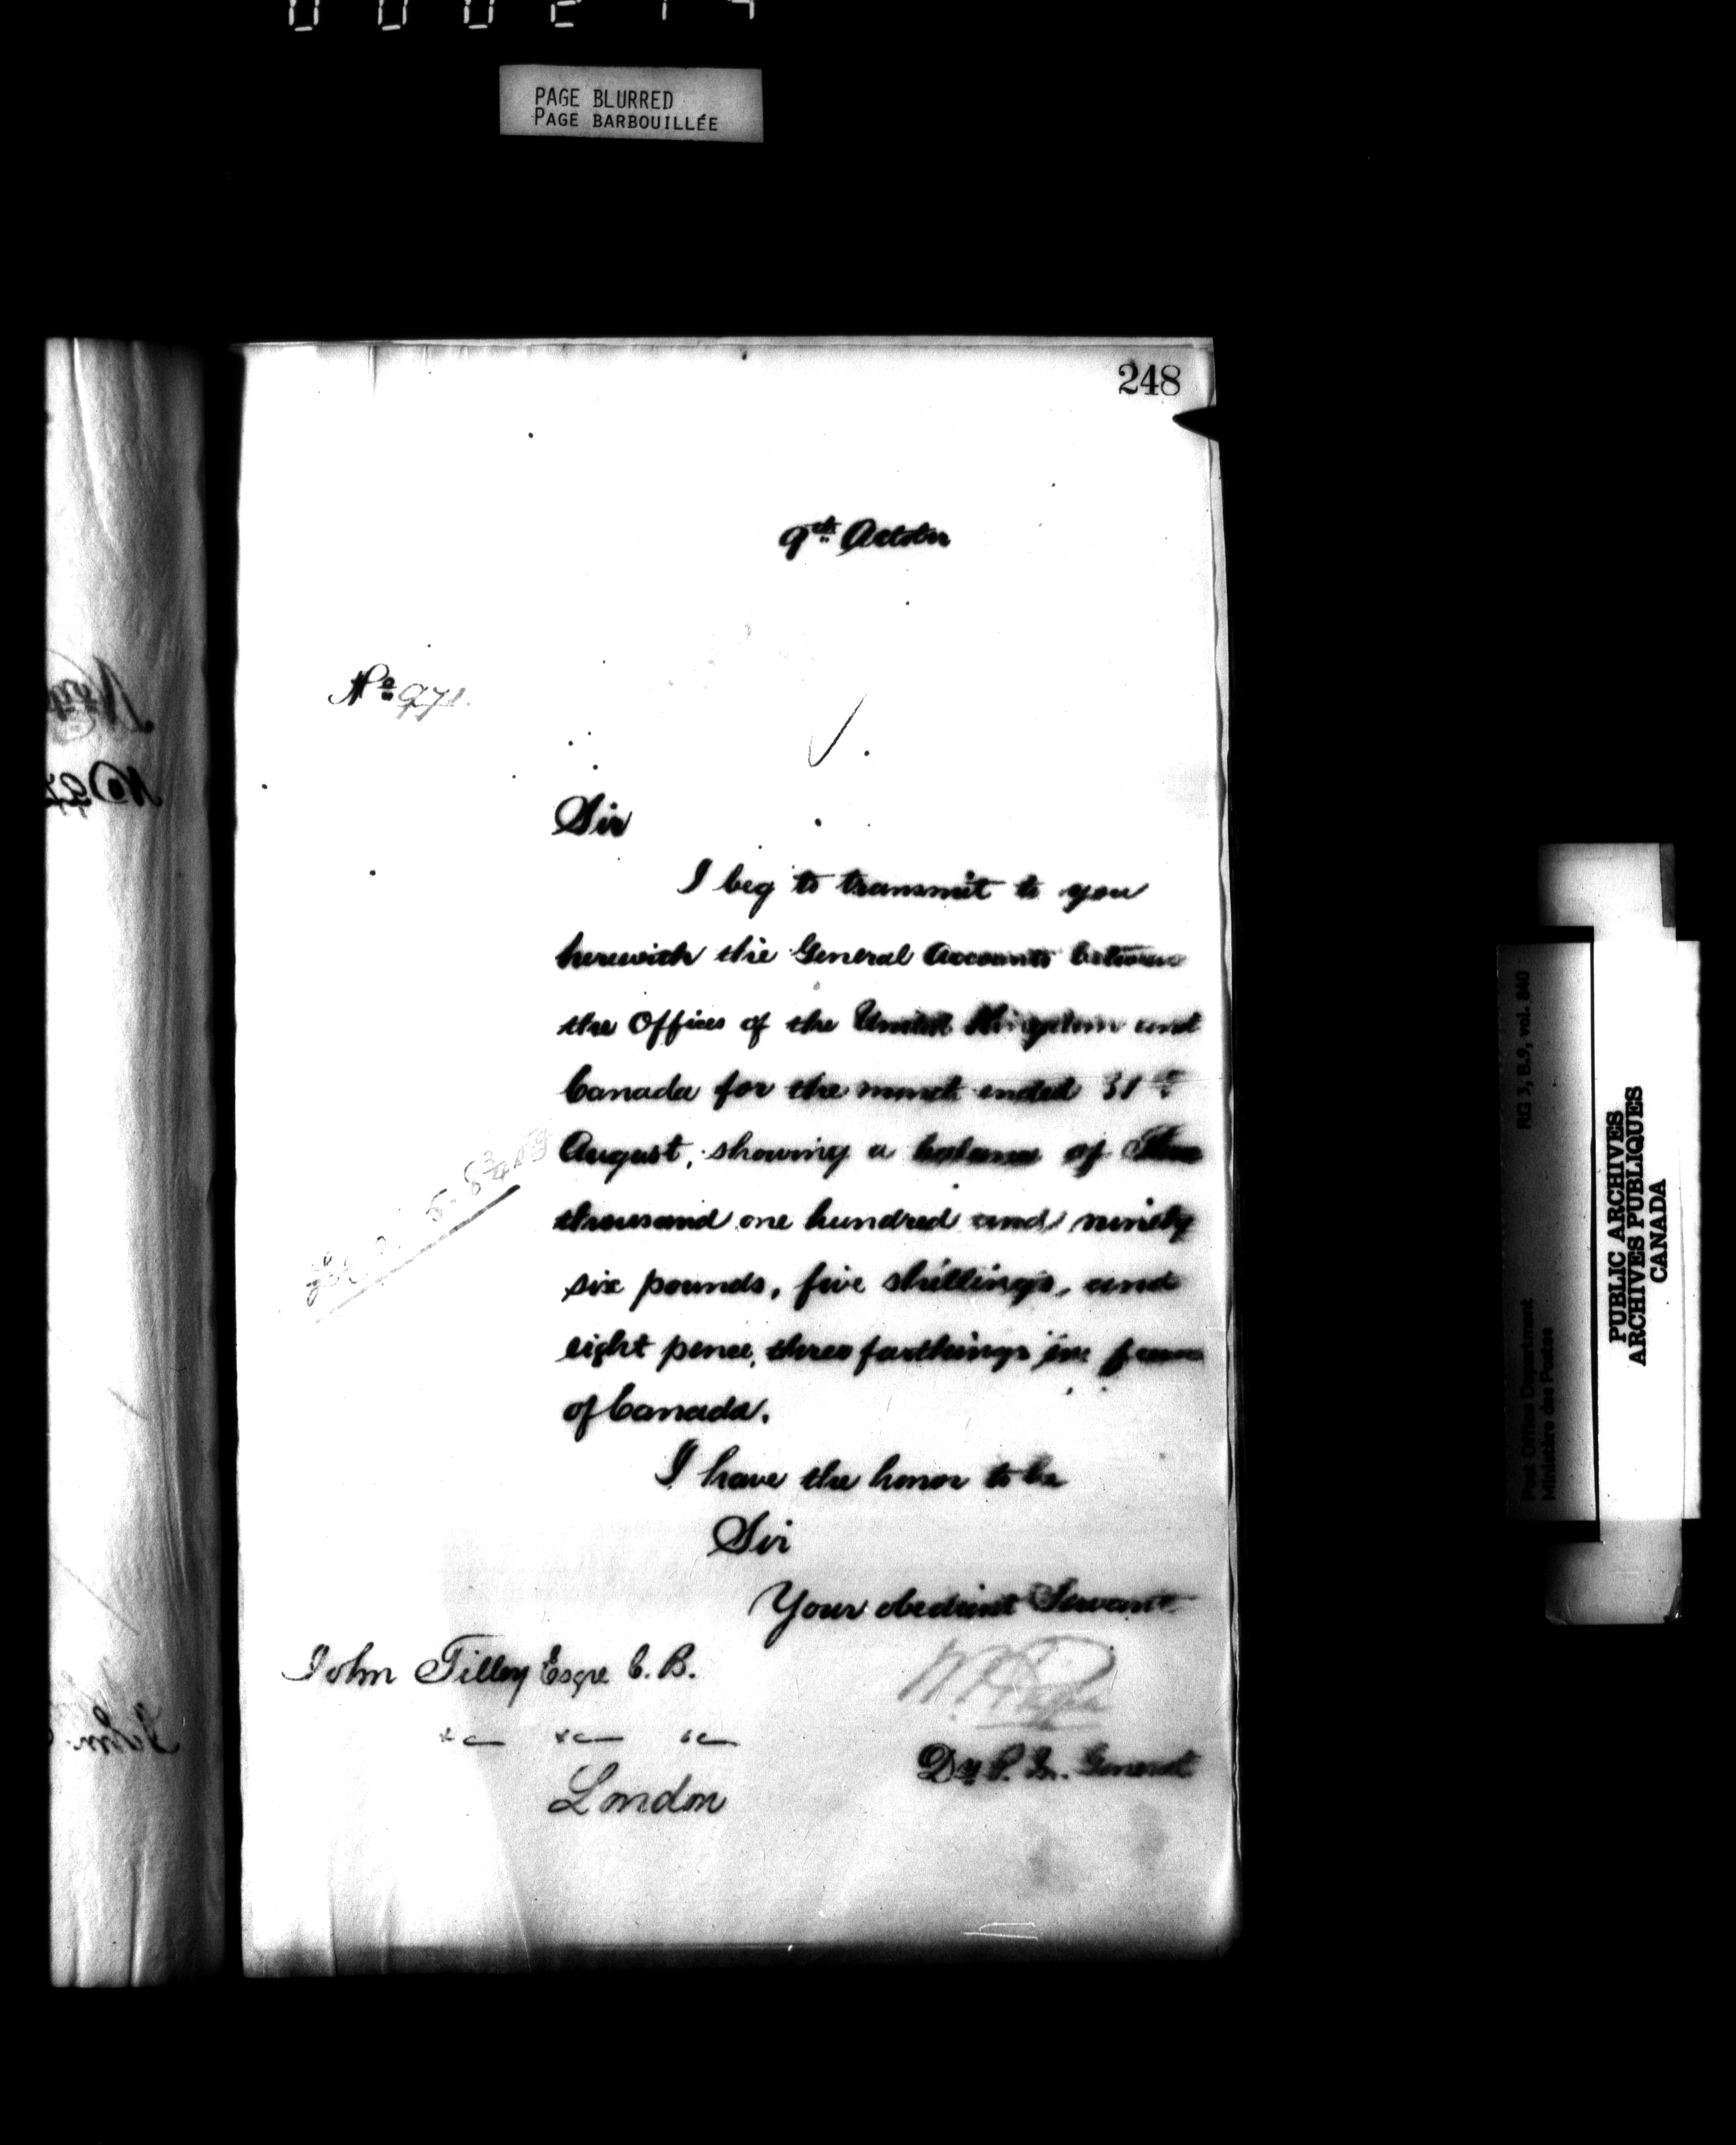 PAGE BLURRED
PAGE BARBOUILLÉE
248
9th October
No 971.
Sir
I beg to transmit to you
herewith the General Accounts between
the Offices of the United Kingdom and
Canada for the month ended 31st
August, showing a balance of
thousand one hundred and ninety
six pounds, five shillings, and
eight pence, three farthings in favour
of Canada.
I have the honor to be
Sir
Your obedient Servant
John Tilley Esqre C. B.
London
Dy P. M. General
PUBLIC ARCHIVES
ARCHIVES PUBLIQUES
CANADA
RG 3, B.9, vol. 840
Post Office Department
Ministère des Postes